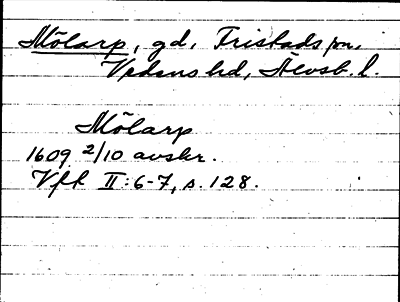 Mölarp, gd, Fristads sn.
Vedens hd, Älvsb. l.
Mölarp
1609 2/10 avskr.
Vfl II:6-7, s. 128.